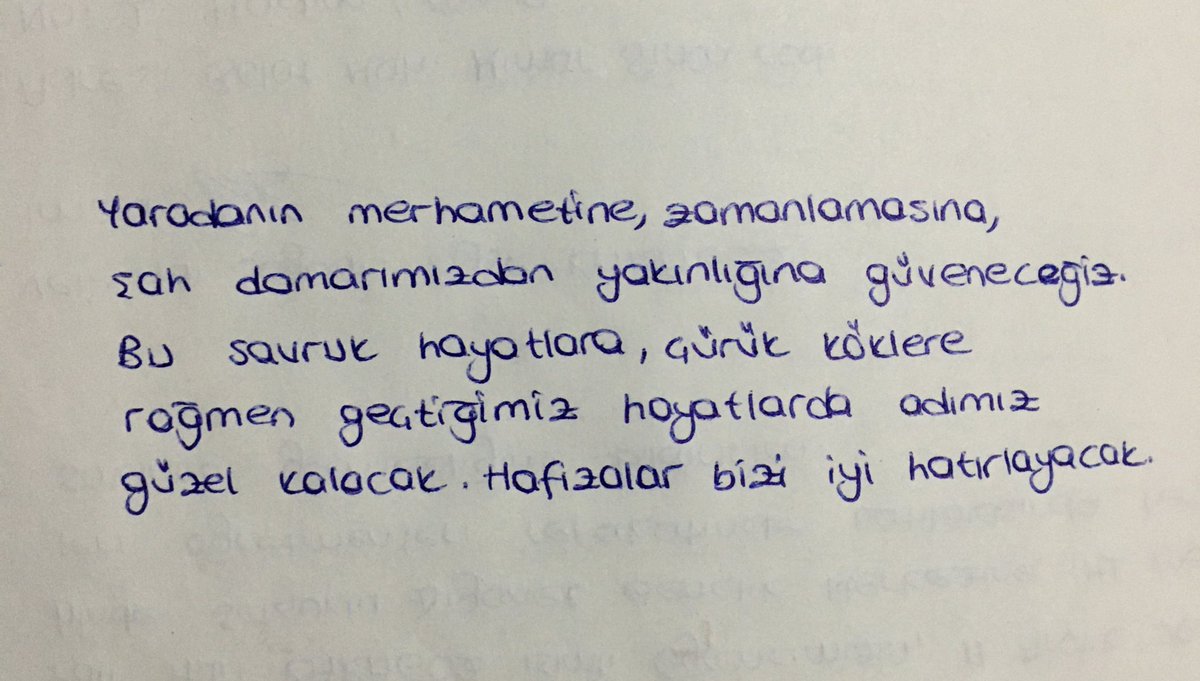 Yaradanın merhametine, zamanlamasına,
şah damarımızdan yakınlığına güveneceğiz.
Bu savruk hayatlara, çürük köklere
rağmen geçtiğimiz hayatlarda adımız
güzel kalacak. Hafızalar bizi iyi hatırlayacak.